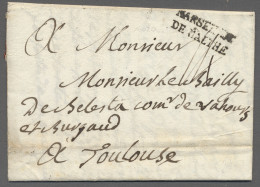 MARSEILLE
DE MALTHE
A Monsieur
Monsieur Le Bailly
De Belesta com.r de
et Burgaud
A Toulouse